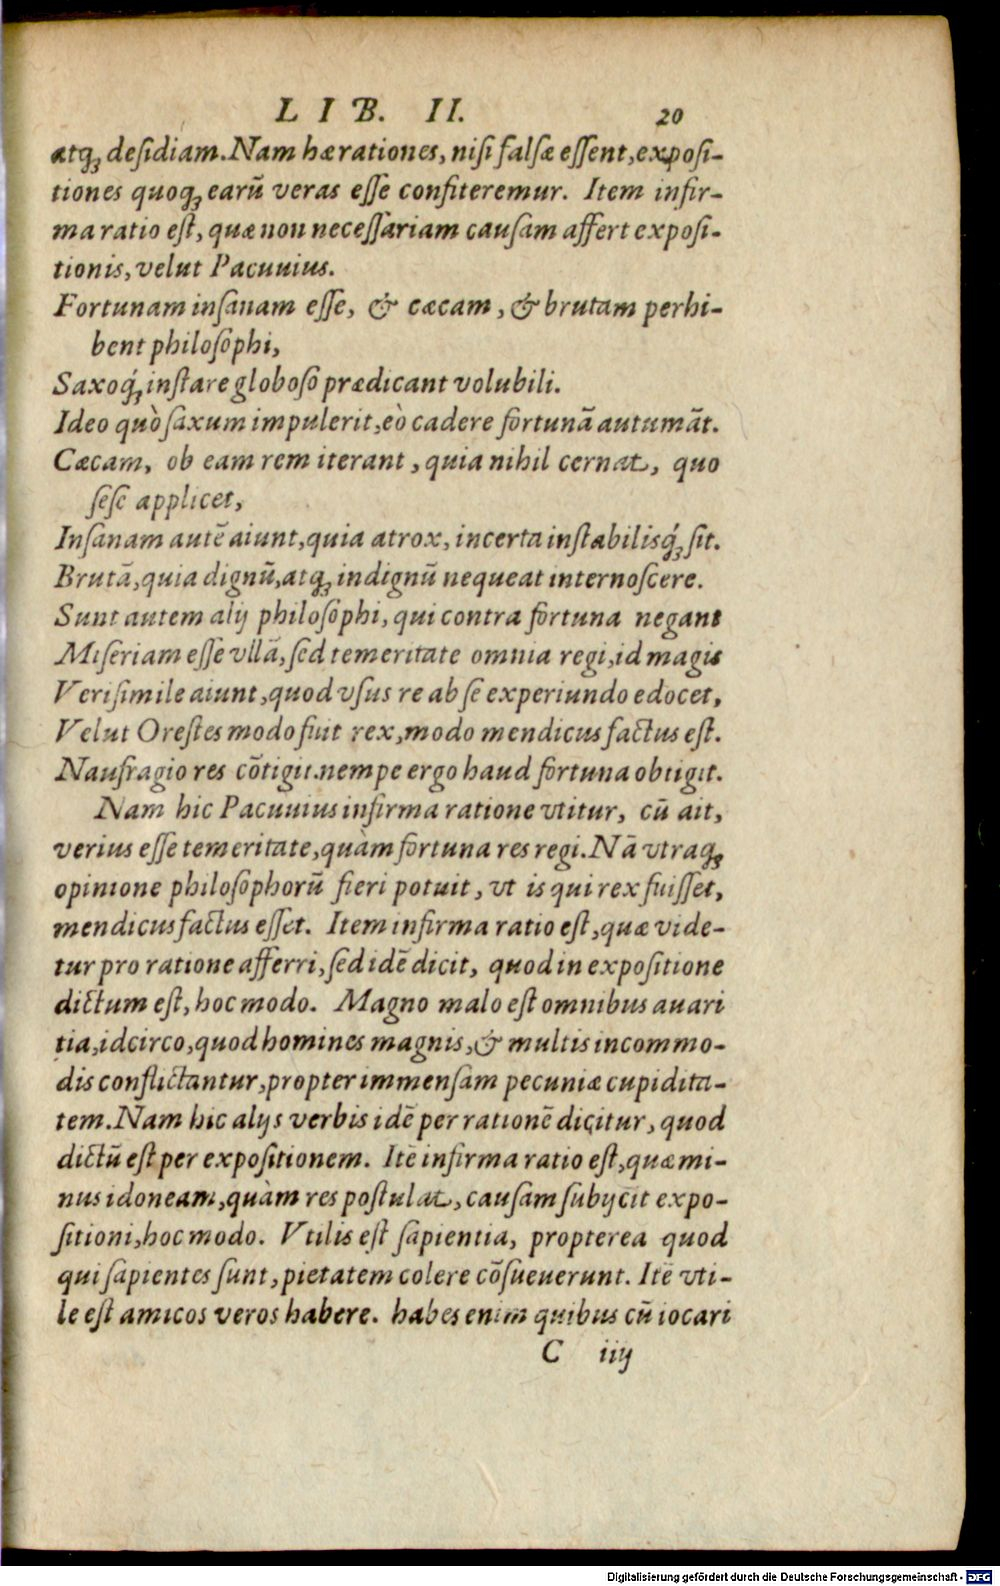 LIB. II. 20
atq; deſidiam. Nam hæ rationes, niſi falſæ eſſent, expoſi-
tiones quoq; earū veras eſſe confiteremur. Item infir-
ma ratio eſt, quæ non neceſſariam cauſam affert expoſi-
tionis, velut Pacuuius.
Fortunam inſanam eſſe, & cæcam, & brutam perhi-
bent philoſophi,
Saxoq́; inſtare globoſo prædicant volubili.
Ideo quò ſaxum impulerit, eò cadere fortunā autumāt.
Cæcam, ob eam rem iterant, quia nihil cernat, quo
ſeſe applicet,
Inſanam autē aiunt, quia atrox, incerta inſtabilisq́; ſit.
Brutā, quia dignū, atq; indignū nequeat internoſcere.
Sunt autem alij philoſophi, qui contra fortuna negant
Miſeriam eſſe vllā, ſed temeritate omnia regi, id magis
Veriſimile aiunt, quod vſus re ab ſe experiundo edocet,
Velut Oreſtes modo fuit rex, modo mendicus factus eſt.
Naufragio res cōtigit. nempe ergo haud fortuna obtigit.
Nam hic Pacuuius infirma ratione vtitur, cū ait,
verius eſſe temeritate, quàm fortuna res regi. Nā vtraq;
opinione philoſophorū fieri potuit, vt is qui rex fuiſſet,
mendicus factus eſſet. Item infirma ratio eſt, quæ vide-
tur pro ratione afferri, ſed idē dicit, quod in expoſitione
dictum eſt, hoc modo. Magno malo eſt omnibus auari
tia, idcirco, quod homines magnis, & multis incommo-
dis conflictantur, propter immenſam pecuniæ cupidita-
tem. Nam hic alijs verbis idē per rationē dicitur, quod
dictū eſt per expoſitionem. Itē infirma ratio eſt, quæ mi-
nus idoneam, quàm res poſtulat, cauſam ſubijcit expo-
ſitioni, hoc modo. Vtilis eſt ſapientia, propterea quod
qui ſapientes ſunt, pietatem colere cōſueuerunt. Itē vti-
le eſt amicos veros habere. habes enim quibus cū iocari
C iiij
Digitalisierung gefördert durch die Deutsche Forschungsgemeinschaft - DFG